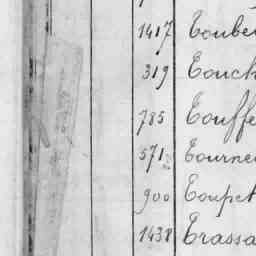 1417 Toube
319 Touch
785 Touffe
571 Tourne
900 Toupet
1438 Trassa